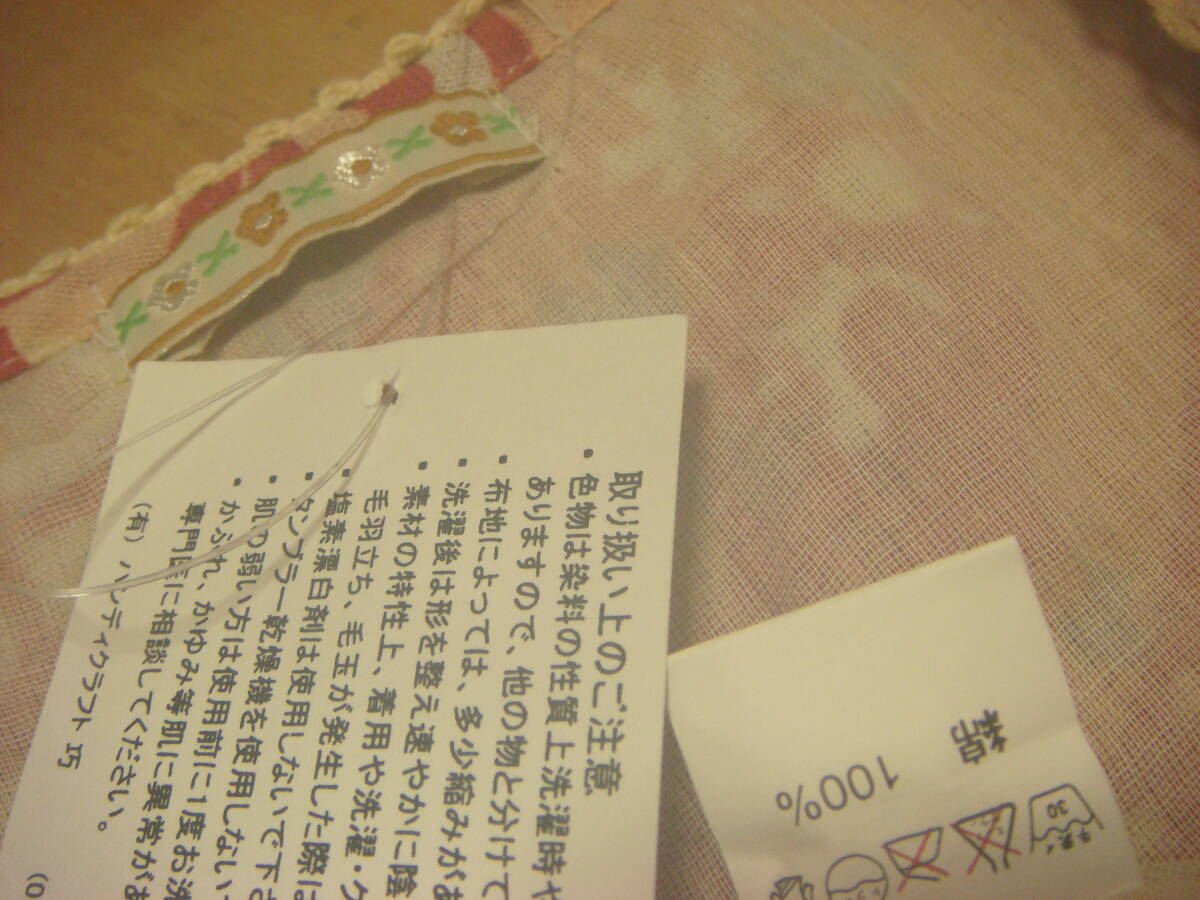 取り扱い上のご注意
・色物は染料の性質上洗濯時や
ありますので、他の物と分けて
・布地によっては、多少縮みがあ
・洗濯後は形を整え速やかに陰
・素材の特性上、着用や洗濯・ク
毛羽立ち、毛玉が発生した際は
・塩素漂白剤は使用しないで下さ
・タンブラー乾燥機を使用しない
・肌の弱い方は使用前に1度お洗
・かぶれ、かゆみ等肌に異常があ
専門医に相談してください。
(有) ハンディクラフト 巧
(0
綿 100%
30